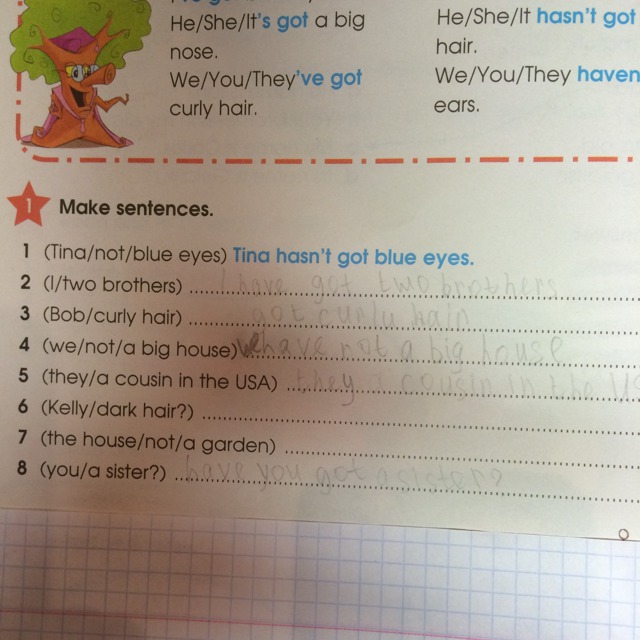 He/She/It's got a big
nose.
We/You/They've got
curly hair.
He/She/It hasn't got
hair.
We/You/They haven
ears.
1 Make sentences.
1 (Tina/not/blue eyes) Tina hasn't got blue eyes.
2 (I/two brothers) I have got two brothers
3 (Bob/curly hair) got curly hair
4 (we/not/a big house) we have not a big house
5 (they/a cousin in the USA) they a cousin in the US
6 (Kelly/dark hair?)
7 (the house/not/a garden)
8 (you/a sister?) have you got a sister?